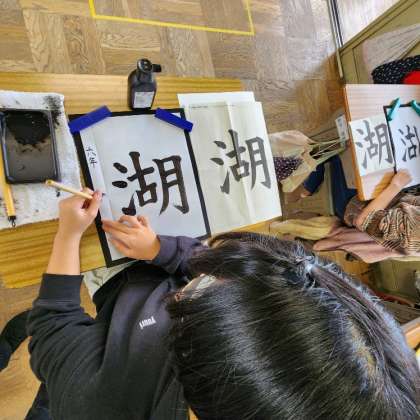 六年
湖
湖
湖
湖